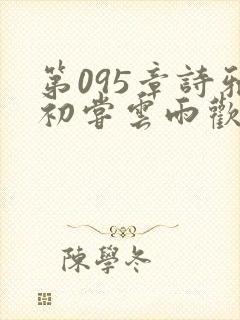 第095章詩雅
初嘗雲雨歡
陳學冬